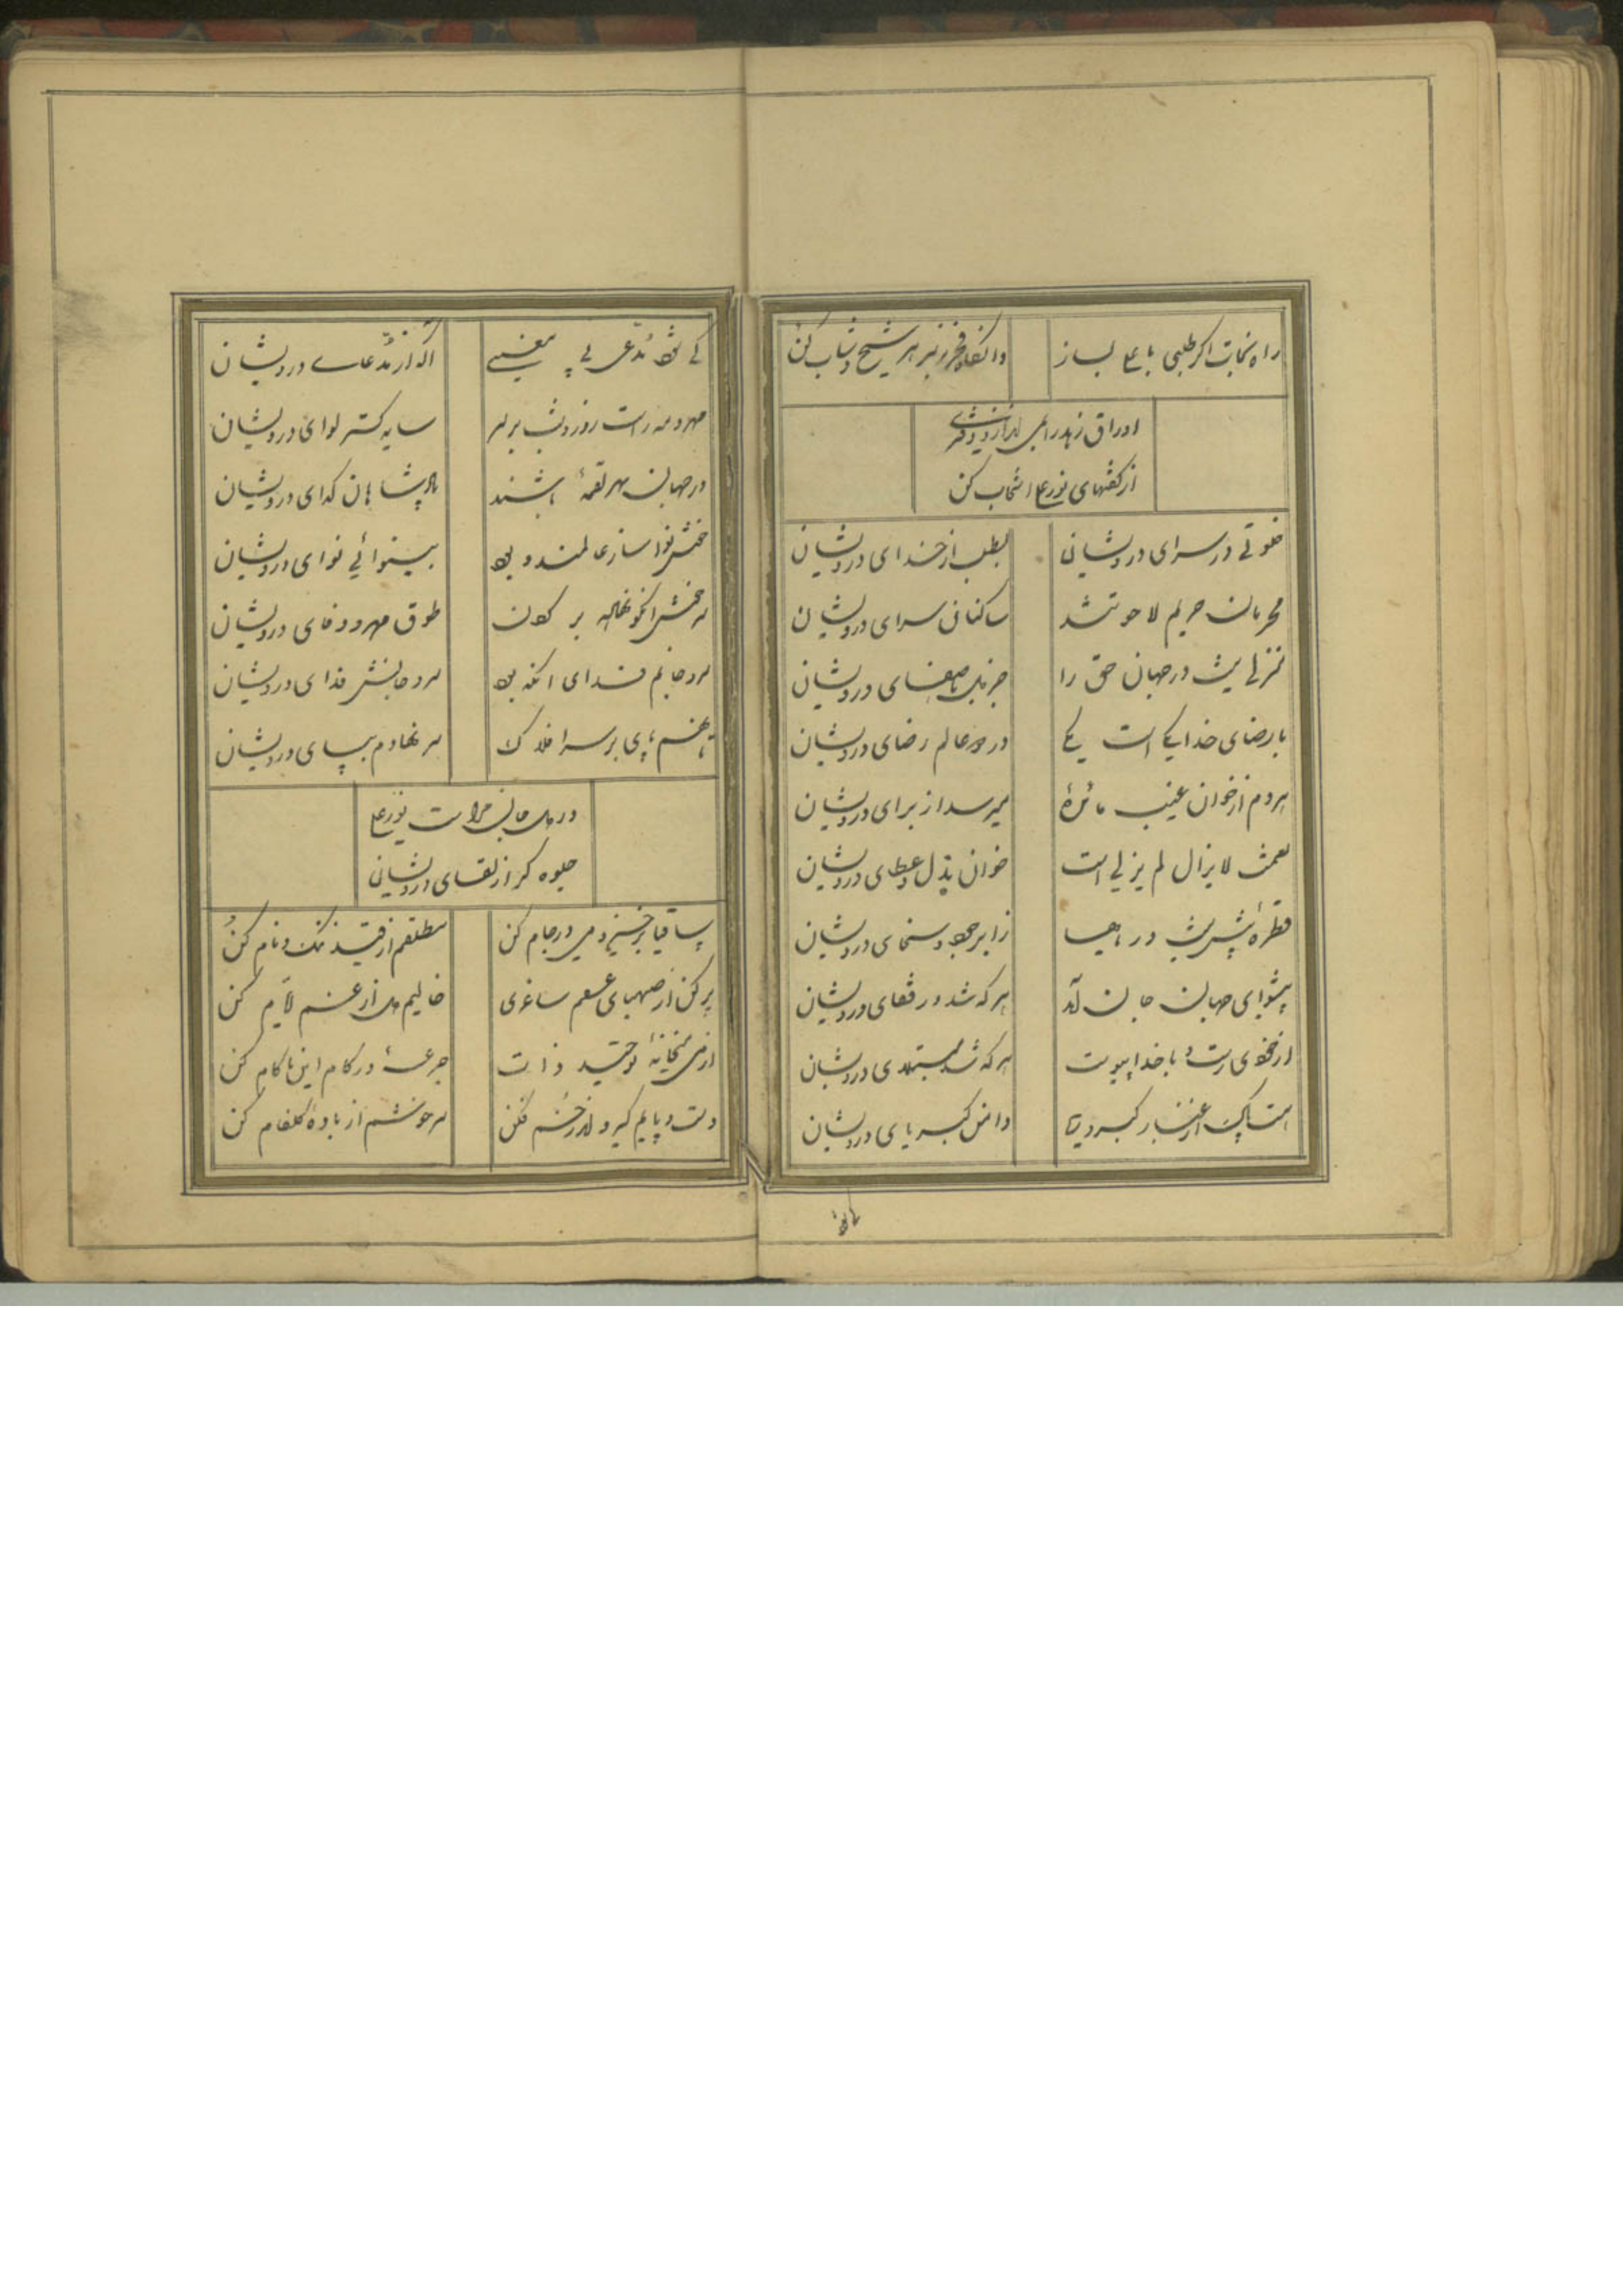 راه نجات اگر طلبی با علی بساز
وانگاه فخر نیز بهر شیخ و شاب کن
اوراق زهد را همی
از گفتهای نورعلی انتخاب کن
خلوتی در سرای درویشان
بطلب از خدای درویشان
محرمان حریم لاهوتند
ساکنان سرای درویشان
منزلی نیست در جهان حق را
جز دل باصفای درویشان
با رضای خدا یکی است یکی
در دو عالم رضای درویشان
هر دم از خوان غیب مائدهٔ
میرسد از برای درویشان
نعمت لایزال لم یزلی است
خوان بذل و عطای درویشان
قطرهٔ بیش نیست دریاها
ز ابر جود و سخای درویشان
پیشوای جهان جان آمد
هر که شد در قفای درویشان
از خودی رست و با خدا پیوست
هر که شد مبتلای درویشان
هست پاک از غبار کبر و ریا
دامن کبریای درویشان
کی شود مدعی بی معنی
آگه از مدعای درویشان
مهر و مه راست روز و شب بر سر
سایه گستر لوای درویشان
در جهان بهر لقمهٔ باشند
پادشاهان گدای درویشان
خوش نوا ساز عالمند و بود
بینوائی نوای درویشان
سرخوش آنکو نهاده بر گردن
طوق مهر و وفای درویشان
سر و جانم فدای آنکه بود
سر و جانش فدای درویشان
تا نهم پای بر سر افلاک
سر نهادم بپای درویشان
در دل و جان مرآت نورعلی
جلوه گر از لقای درویشان
ساقیا برخیز و می در جام کن
مطلقم از قید ننگ و نام کن
پر کن از صهبای عشقم ساغری
خالیم دل از غم ایام کن
از می میخانهٔ توحید ذات
جرعهٔ در کام این ناکام کن
دست و پایم گیر و اندر خم فکن
سرخوشم از بادهٔ گلفام کن